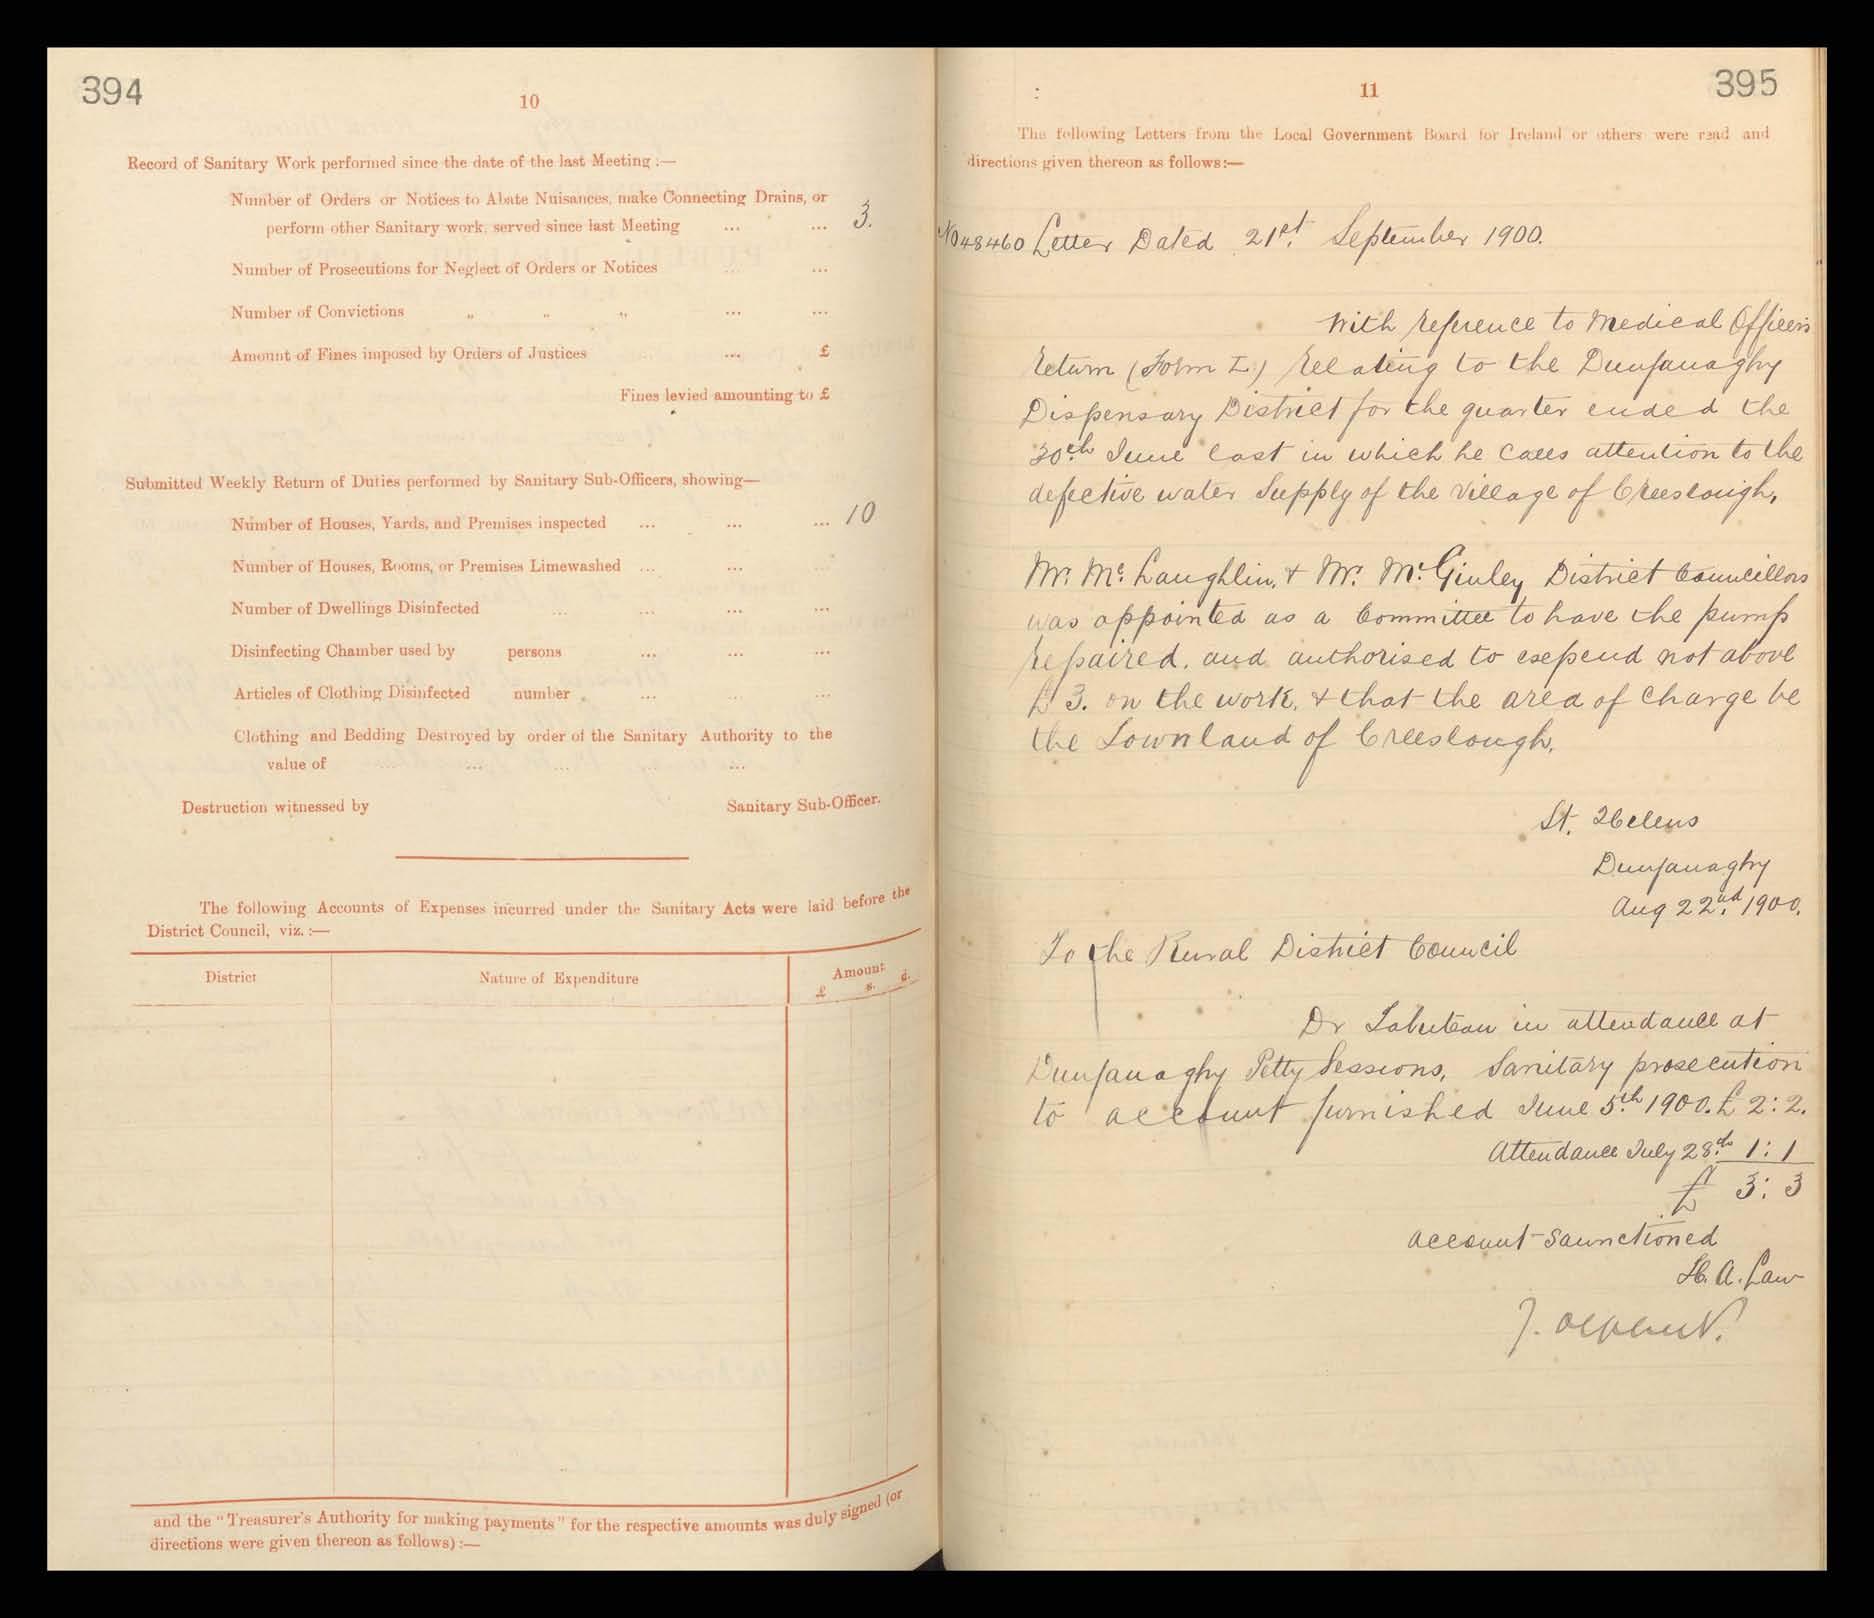 394
10
Record of Sanitary Work performed since the date of the last Meeting :—
Number of Orders or Notices to Abate Nuisances, make Connecting Drains, or
perform other Sanitary work, served since last Meeting ... ... 3.
Number of Prosecutions for Neglect of Orders or Notices ... ...
Number of Convictions „ „ „ ... ...
Amount of Fines imposed by Orders of Justices ... ... £
Fines levied amounting to £
Submitted Weekly Return of Duties performed by Sanitary Sub-Officers, showing—
Number of Houses, Yards, and Premises inspected ... ... ... 10
Number of Houses, Rooms, or Premises Limewashed ... ... ...
Number of Dwellings Disinfected ... ... ... ...
Disinfecting Chamber used by persons ... ... ...
Articles of Clothing Disinfected number ... ... ...
Clothing and Bedding Destroyed by order of the Sanitary Authority to the
value of ... ... ... ... ...
Destruction witnessed by Sanitary Sub-Officer.
The following Accounts of Expenses incurred under the Sanitary Acts were laid before the
District Council, viz. :—
District Nature of Expenditure Amount
£ s. d.
and the "Treasurer's Authority for making payments" for the respective amounts was duly signed (or
directions were given thereon as follows) :—
395
11
The following Letters from the Local Government Board for Ireland or others were read and
directions given thereon as follows:—
No 48460 Letter Dated 21st September 1900.
With reference to Medical Officers
return (Form I.) relating to the Dunfanaghy
Dispensary District for the quarter ended the
30th June last in which he calls attention to the
defective water Supply of the Village of Creeslough.
Mr. Mc. Laughlin, & Mr. Mc. Ginley District Councillors
was appointed as a Committee to have the pump
repaired. and authorised to expend not above
£ 3. on the work. & that the area of charge be
the Townland of Creeslough.
St. Helens
Dunfanaghy
Aug 22nd 1900.
To the Rural District Council
Dr in attendance at
Dunfanaghy Petty Sessions, Sanitary prosecution
to account furnished June 5th 1900. £ 2: 2.
Attendance July 28th 1: 1
£ 3: 3
account sawnctioned
H. A. Law
J.